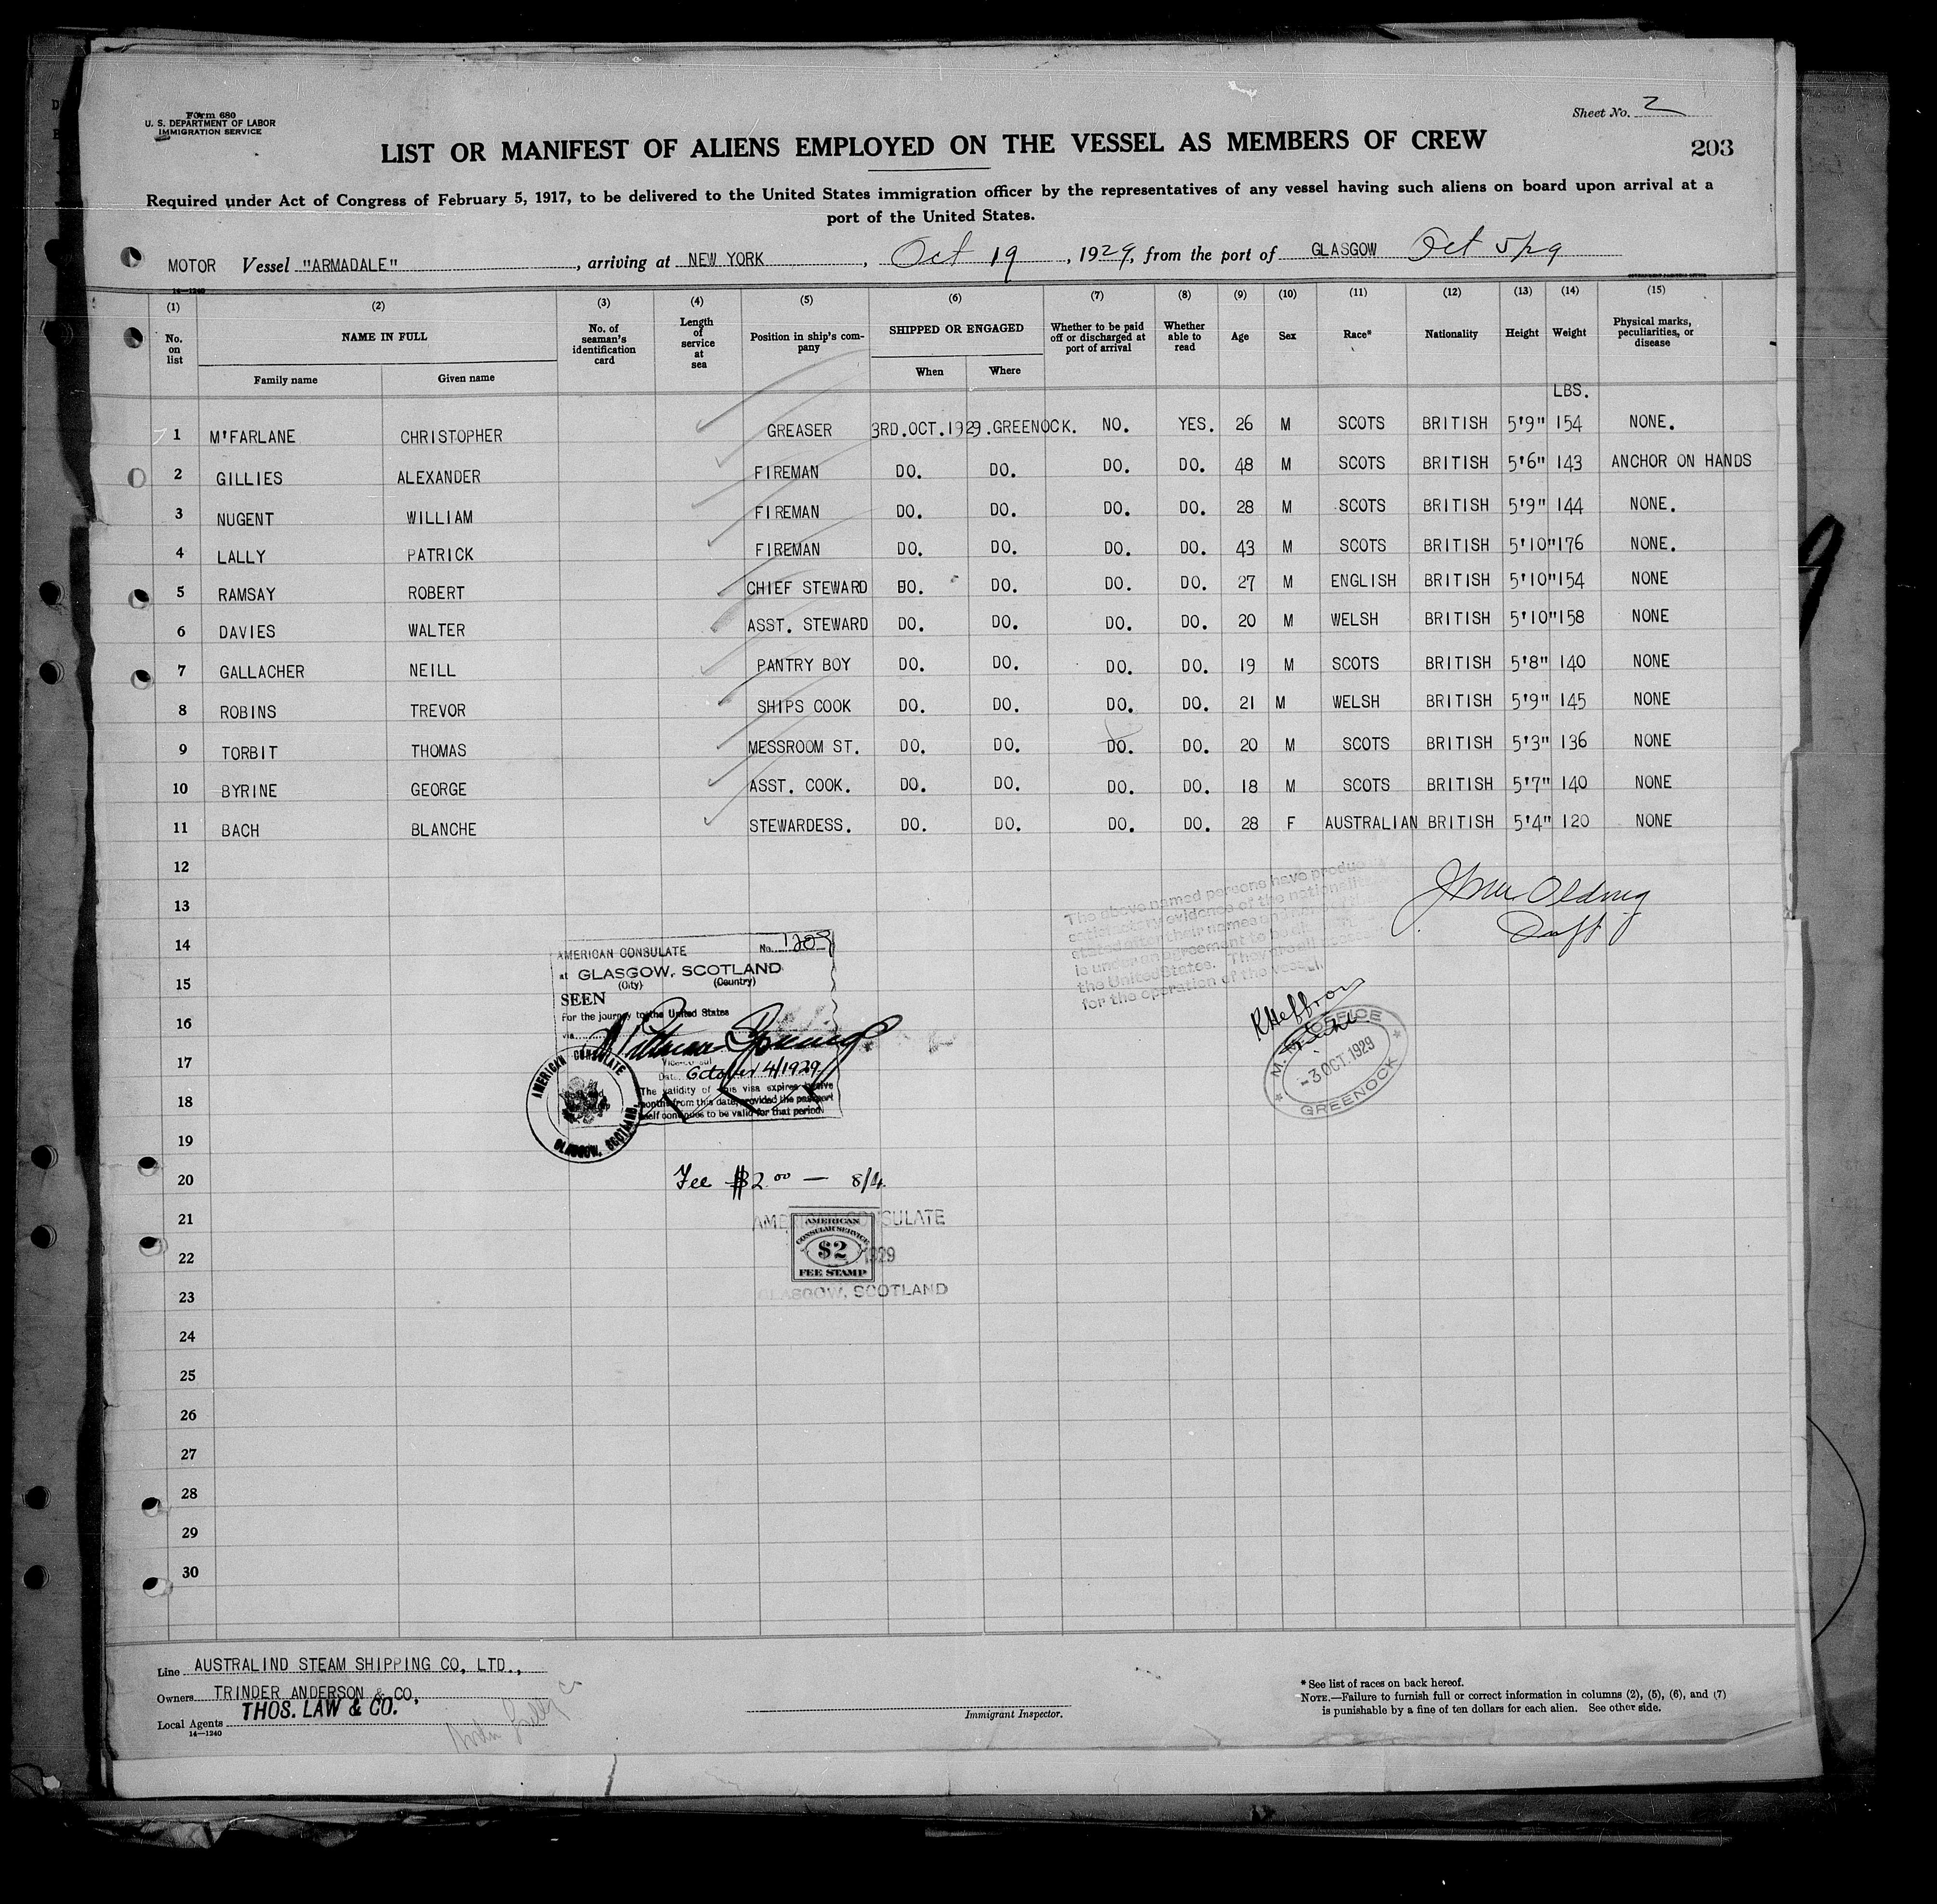 Form 680
U. S. DEPARTMENT OF LABOR
IMMIGRATION SERVICE
Sheet No. 2
LIST OR MANIFEST OF ALIENS EMPLOYED ON THE VESSEL AS MEMBERS OF CREW
203
Required under Act of Congress of February 5, 1917, to be delivered to the United States immigration officer by the representatives of any vessel having such aliens on board upon arrival at a
port of the United States.
MOTOR Vessel "ARMADALE", arriving at NEW YORK, Oct 19, 1929, from the port of GLASGOW Oct 5/29
14—1240
(1) (2) (3) (4) (5) (6) (7) (8) (9) (10) (11) (12) (13) (14) (15)
No. on list NAME IN FULL Family name Given name No. of seaman's identification card Length of service at sea Position in ship's company SHIPPED OR ENGAGED When Where Whether to be paid off or discharged at port of arrival Whether able to read Age Sex Race* Nationality Height Weight Physical marks, peculiarities, or disease
LBS.
1 M'FARLANE CHRISTOPHER GREASER 3RD.OCT.1929.GREENOCK. NO. YES. 26 M SCOTS BRITISH 5'9" 154 NONE.
2 GILLIES ALEXANDER FIREMAN DO. DO. DO. DO. 48 M SCOTS BRITISH 5'6" 143 ANCHOR ON HANDS
3 NUGENT WILLIAM FIREMAN DO. DO. DO. DO. 28 M SCOTS BRITISH 5'9" 144 NONE.
4 LALLY PATRICK FIREMAN DO. DO. DO. DO. 43 M SCOTS BRITISH 5'10" 176 NONE.
5 RAMSAY ROBERT CHIEF STEWARD DO. DO. DO. DO. 27 M ENGLISH BRITISH 5'10" 154 NONE
6 DAVIES WALTER ASST. STEWARD DO. DO. DO. DO. 20 M WELSH BRITISH 5'10" 158 NONE
7 GALLACHER NEILL PANTRY BOY DO. DO. DO. DO. 19 M SCOTS BRITISH 5'8" 140 NONE
8 ROBINS TREVOR SHIPS COOK DO. DO. DO. DO. 21 M WELSH BRITISH 5'9" 145 NONE
9 TORBIT THOMAS MESSROOM ST. DO. DO. DO. DO. 20 M SCOTS BRITISH 5'3" 136 NONE
10 BYRINE GEORGE ASST. COOK. DO. DO. DO. DO. 18 M SCOTS BRITISH 5'7" 140 NONE
11 BACH BLANCHE STEWARDESS. DO. DO. DO. DO. 28 F AUSTRALIAN BRITISH 5'4" 120 NONE
12
13
14
15
16
17
18
19
20
21
22
23
24
25
26
27
28
29
30
The above named persons have produced
satisfactory evidence of the nationality
stated after their names and
is under an agreement to be
the United States. They are all
for the operation of the vessel.
AMERICAN CONSULATE No. 1209
at GLASGOW, SCOTLAND
(City) (Country)
SEEN
For the journey to the United States
via
Vice-consul
Date October 4/1929
The validity of this visa expires twelve
months from this date, provided the passport
itself continues to be valid for that period.
AMERICAN CONSULATE
GLASGOW, SCOTLAND
R Heffron
M. M. OFFICE
-3 OCT. 1929
GREENOCK
Fee $2.00 — 8/4
AMERICAN CONSULATE
1929
GLASGOW, SCOTLAND
AMERICAN
CONSULAR SERVICE
$2
FEE STAMP
Line AUSTRALIND STEAM SHIPPING CO, LTD.,
Owners TRINDER ANDERSON & CO.
Local Agents THOS. LAW & CO.
14—1240
Immigrant Inspector.
* See list of races on back hereof.
NOTE.—Failure to furnish full or correct information in columns (2), (5), (6), and (7)
is punishable by a fine of ten dollars for each alien. See other side.